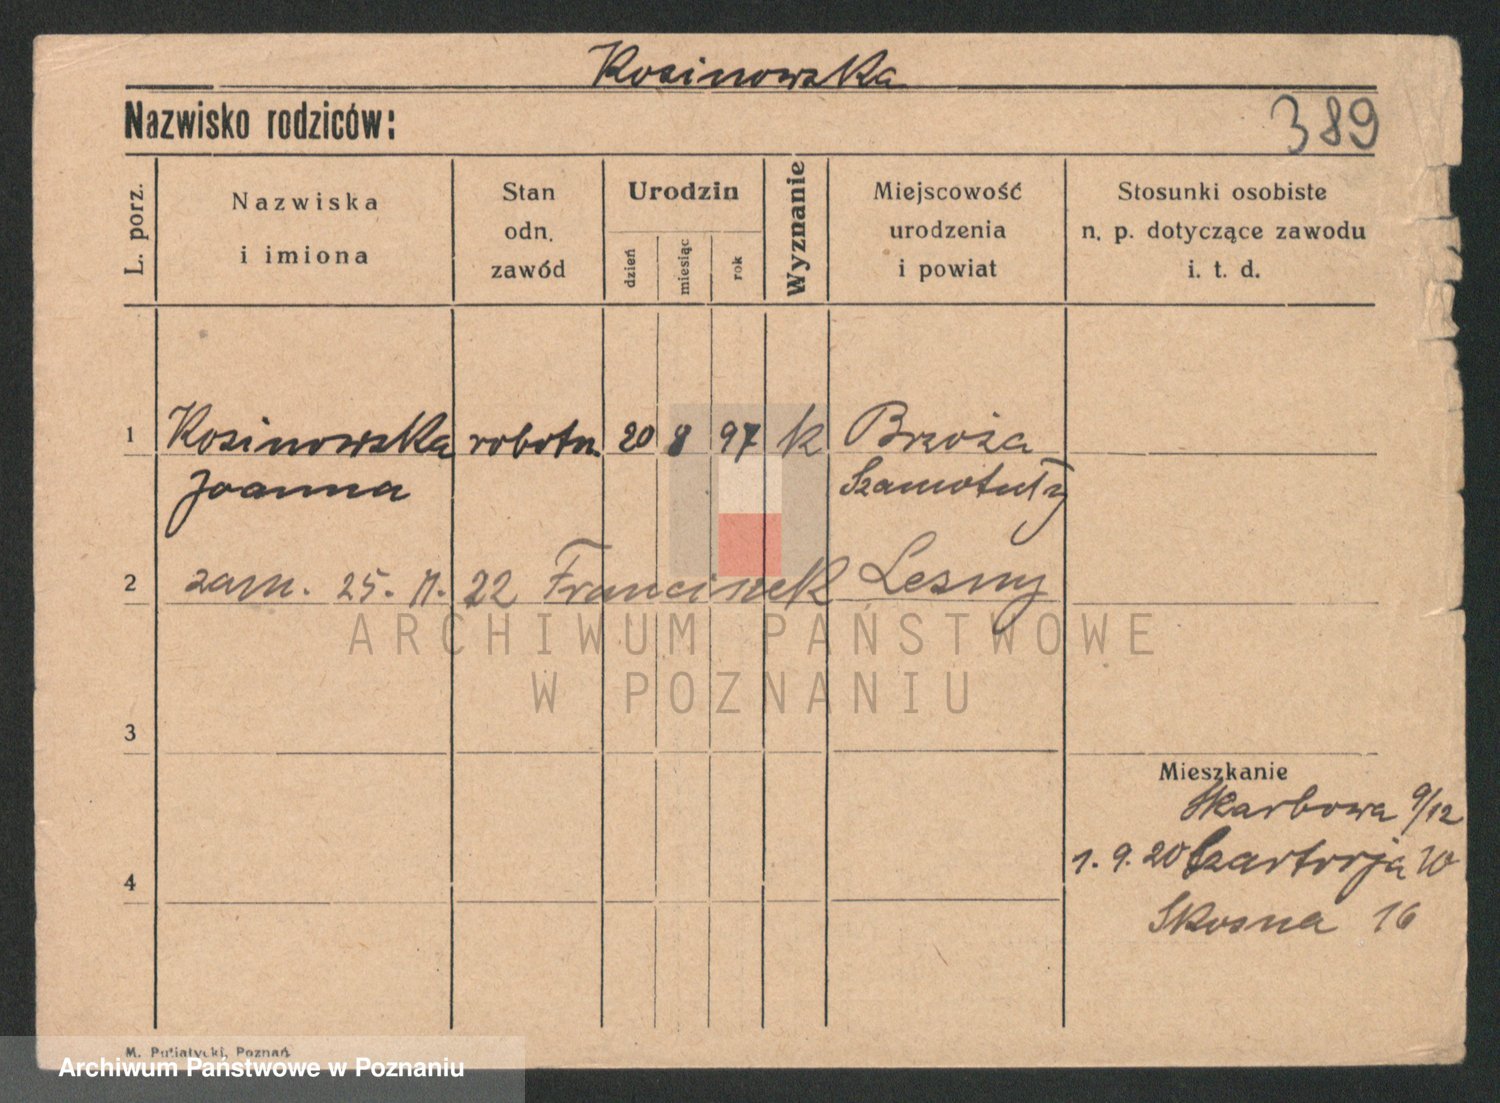 Kosinowska
Nazwisko rodziców:
389
L. porz.
Nazwiska
i imiona
Stan
odn.
zawód
Urodzin
dzień
miesiąc
rok
Wyznanie
Miejscowość
urodzenia
i powiat
Stosunki osobiste
n. p. dotyczące zawodu
i. t. d.
1 Kosinowska robotn. 20 8 97 k Brzoza
Joanna Szamotuły
2 zam. 25. 11. 22 Franciszek Lesny
ARCHIWUM PAŃSTWOWE
W POZNANIU
3
Mieszkanie
Skarbowa 9/12
1. 9. 20 Czartorja 10
4
Skosna 16
M. Putiatycki, Poznań
Archiwum Państwowe w Poznaniu